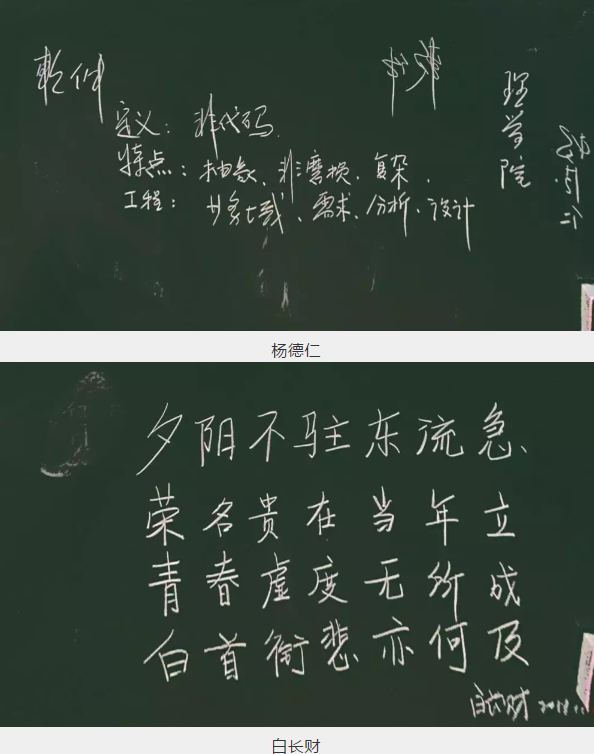 软件
理学院
定义：非代码
特点：抽象、非磨损、复杂.
工程：
需求、分析、设计
杨德仁
夕阴不驻东流急、
荣名贵在当年立
青春虚度无所成
白首衔悲亦何及
白长财 2018.11
白长财